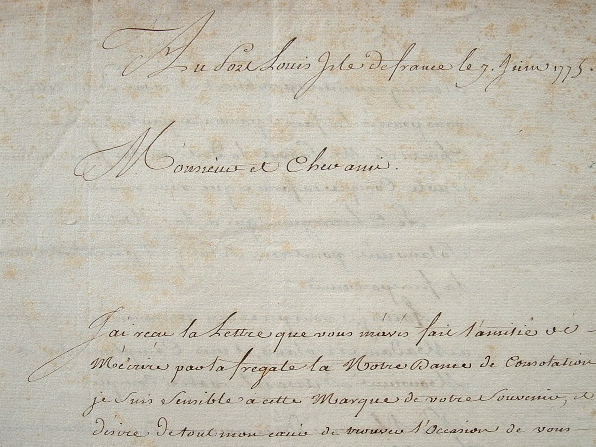 Au Port Louis Isle de france le 7. Juin 1775.
Monsieur et Cher ami.
J'ai reçu la Lettre que vous m'avés fait l'amitié de
M'écrire par la fregate la Notre Dame de Consolation
je Suis Sensible a cette Marque de votre Souvenir, et
désire de tout mon cœur de trouver l'Occasion de vous-